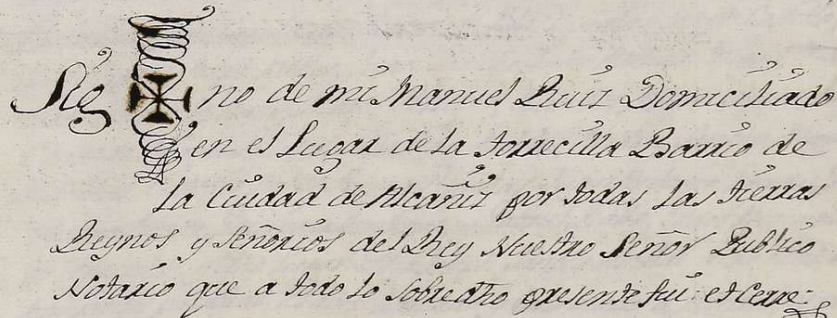 Sig no de mi Manuel Ruiz Domiciliado
en el Lugar de la Torrecilla Barrio de
la Ciudad de Alcañiz por todas las tierras
Reynos y señorios del Rey Nuestro Señor Publico
Notario que a todo lo sobredho presente fui: et Cerre: